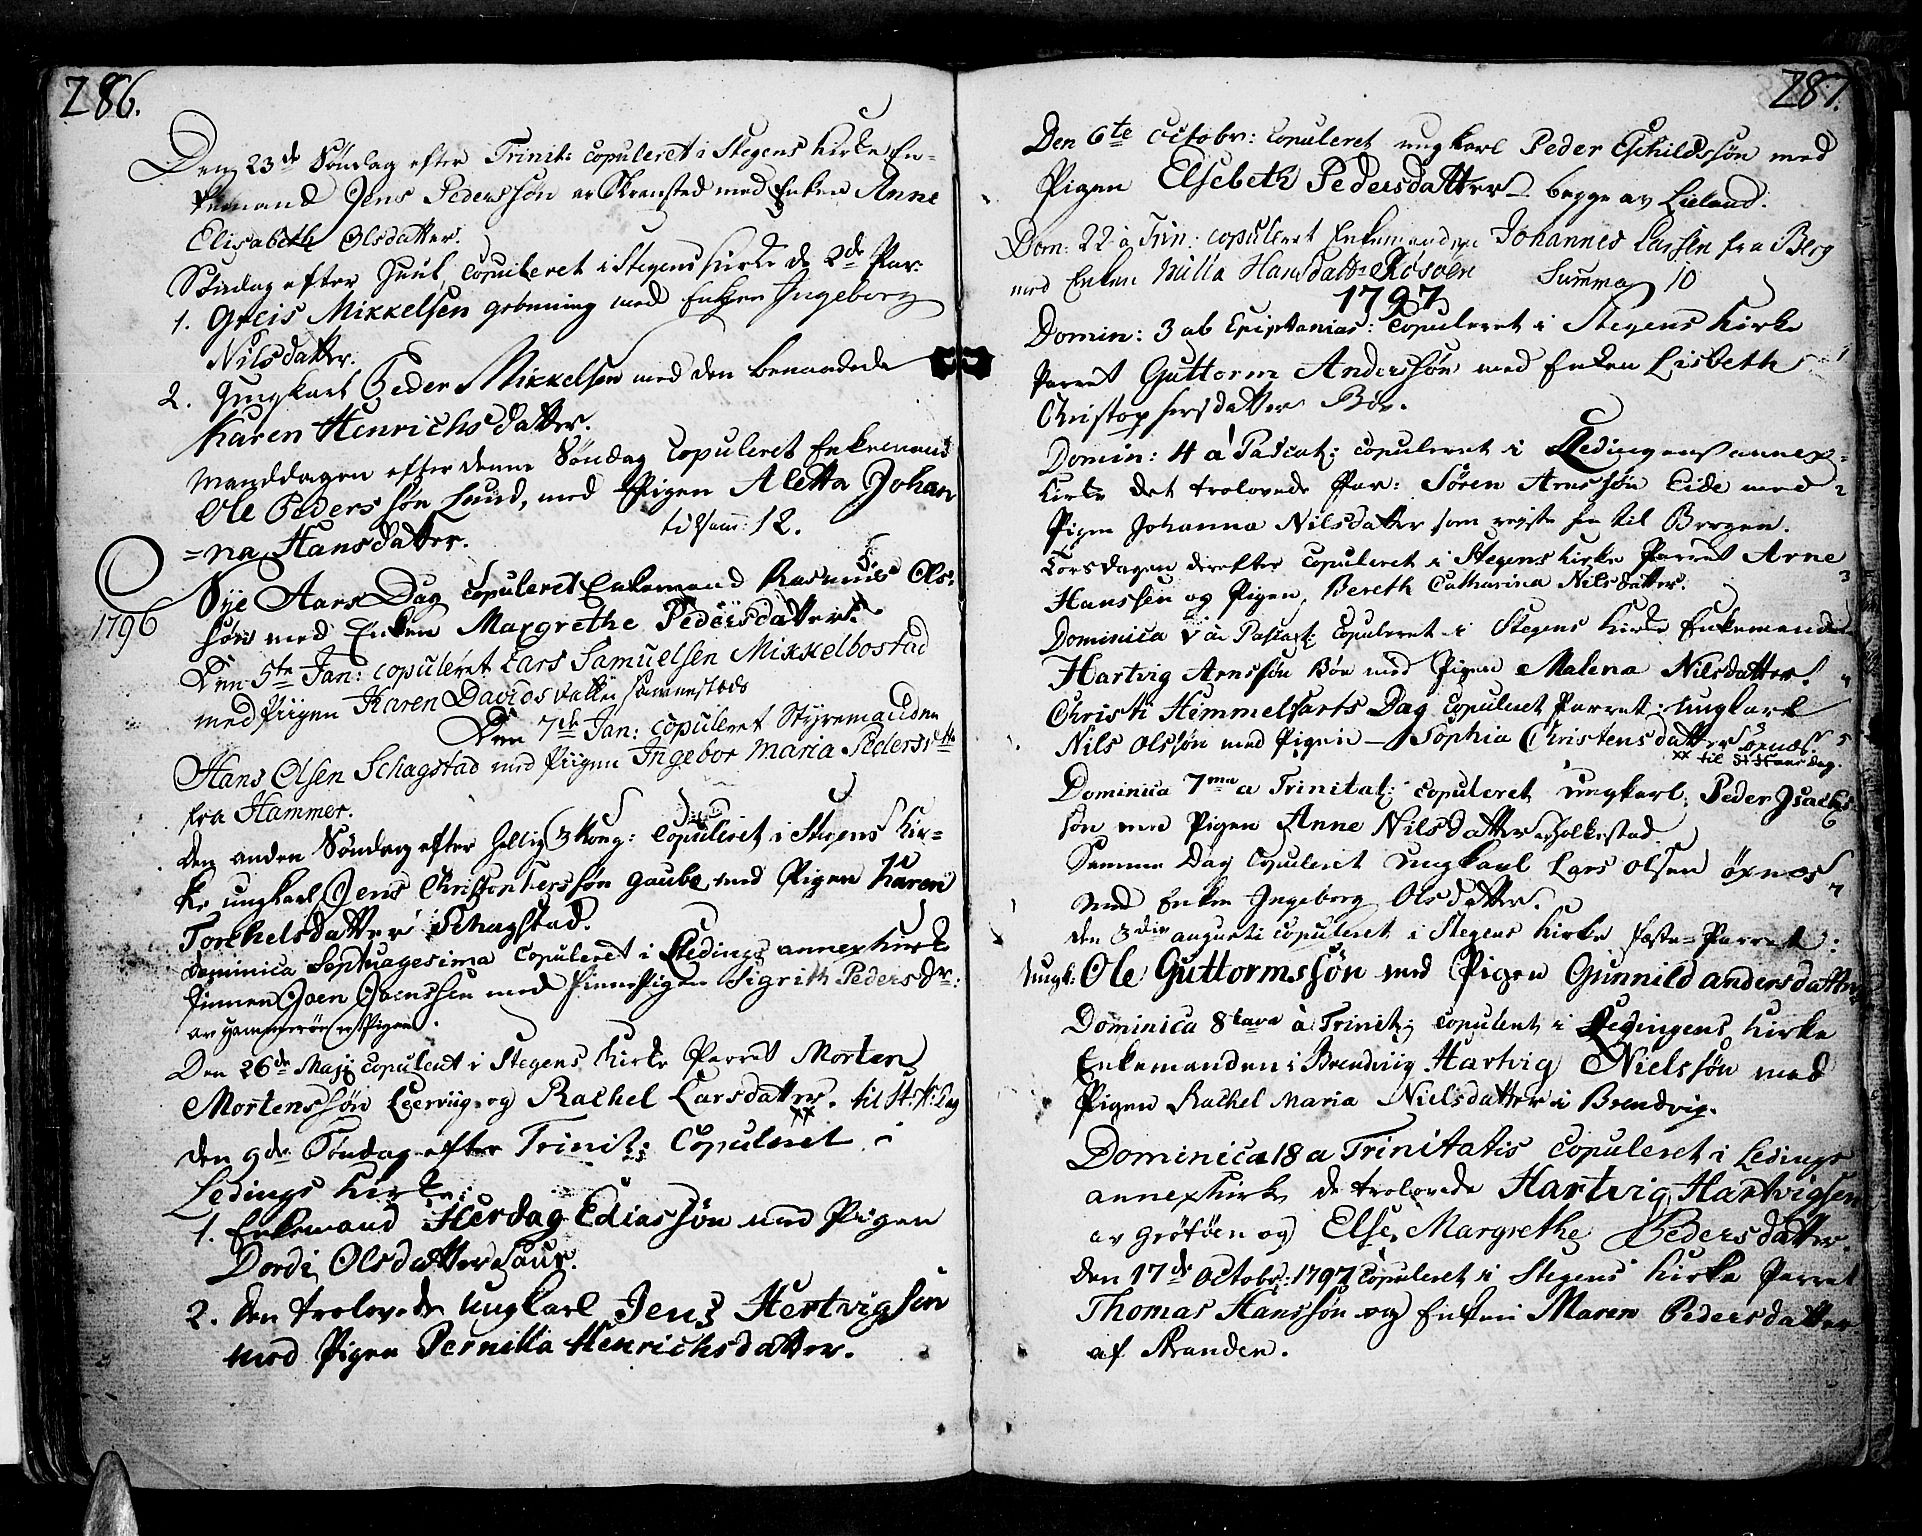 286.
Den 23de Søndag efter Trinit: copuleret i Stegens Kirke En-
kemand Jens Pederssøn med Enken Anne
Elisabeth Olsdatter.
Søndag efter Juul copuleret i Stegens Kirke de 2de Par
1. Greis Mikkelsen med Enken Ingeborg
Nilsdatter.
2. Ungkarl Peder Mikkelsen med den benaadede
Karen Henrichsdatter.
Manddagen efter denne Søndag copuleret Enkemand
Ole Pederssøn Lund, med Pigen Aletta Johan
=na Hansdatter. tilsam: 12.
1796
Nye Aars Dag copuleret Enkemand Rasmus Ols-
søn med Enken Margrethe Pedersdatter.
Den 5te Jan: copuleret Lars Samuelsen Mikkelbostad
med Piigen Karen Davidsdatter sammestæds
Den 7de Jan: copuleret Styremanden
Hans Olsen Schagstad med Piigen Ingebor Maria Pedersdtt
fra Hammer.
Den anden Søndag efter Hellig 3 Kong: copuleret i Stegens Kir-
ke ungkarl Jens Christophersøn Gaube med Pigen Karen
Torchelsdatter Schagstad.
Dominica Septuagesima copuleret i Ledings annex Kirke
Finnen Joen Joenssen med Finnepigen Sigrith Pedersdr:
av
Den 26de Maji copuleret i Stegens Kirke Parret Morten
Mortenssøn og Rachel Larsdatter. til St. H: Dag
Den 9de Søndag efter Trinit: Copuleret i
Ledings Kirke:
1. Enkemand Herdag Ediassøn med Pigen
Dordi Olsdatter
2. den trolovede ungkarl Jens Hertvigsen
med Pigen Pernilla Henrichsdatter.
287.
Den 6te Octobr: copuleret ungkarl Peder Eschildssøn med
Pigen Elsebeth Pedersdatter begge av
Dom: 22 a Trin: copuleret Enkemanden Johannes Larsen fra Berg
med Enken Nilla Hansdattr Røsøen Summa 10
1797
Domin: 3 ab Epiphanias: copuleret i Stegens Kirke
Parret Guttorm Anderssøn med Enken Lisbeth 1
Christophersdatter Bøe.
Domin: 4 á Pascat: copuleret i Ledingens annex-
Kirke det trolovede Par: Søren Arnssøn Eide med 2
Pigen Johanna Nilsdatter som reiste hen til Bergen.
Torsdagen derefter copuleret i Stegens Kirke Parret Arne 3
Hanssen og Pigen, Bereth Catharina Nilsdatter.
Dominica V a Pascat: copuleret i Stegens Kirke Enkemanden
Hartvig Arnssøn Bøe med Pigen Malena Nilsdatter. 4
Christi Himmelfarts Dag copuleret Parret: ungkarl
Nils Olssøn med Pigen Sophia Christensdatter 5
xx til St Hans dag.
Dominica 7ma a Trinitat: copuleret ungkarl, Peder Isachs
søn med Pigen Anne Nilsdatter Holkestad. 6
Samme Dag copuleret ungkarl Lars Olsen Øxnes
med Enken Ingeborg Olsdatter. 7
den 3die augusti copuleret i Stegens Kirke fæste-Parret:
Ungk: Ole Guttormssøn med Pigen Gunnild andersdatter
Dominica 8tava á Trinit: copuleret i Ledingens Kirke
Enkemanden i Brendviig Hartvig Nielssøn med
Pigen Rachel Maria Nielsdatter i Brendvig.
Dominica 18 a Trinitatis copuleret i Ledings
annexKirke de trolovede Hartvig Hartvigsen
av Grøtøen og Else Margrethe Pedersdatter.
Den 17de Octobr: 1797 copuleret i Stegens Kirke Parret
Thomas Hanssøn og Enken Maren Pedersdatter
af Stranden.